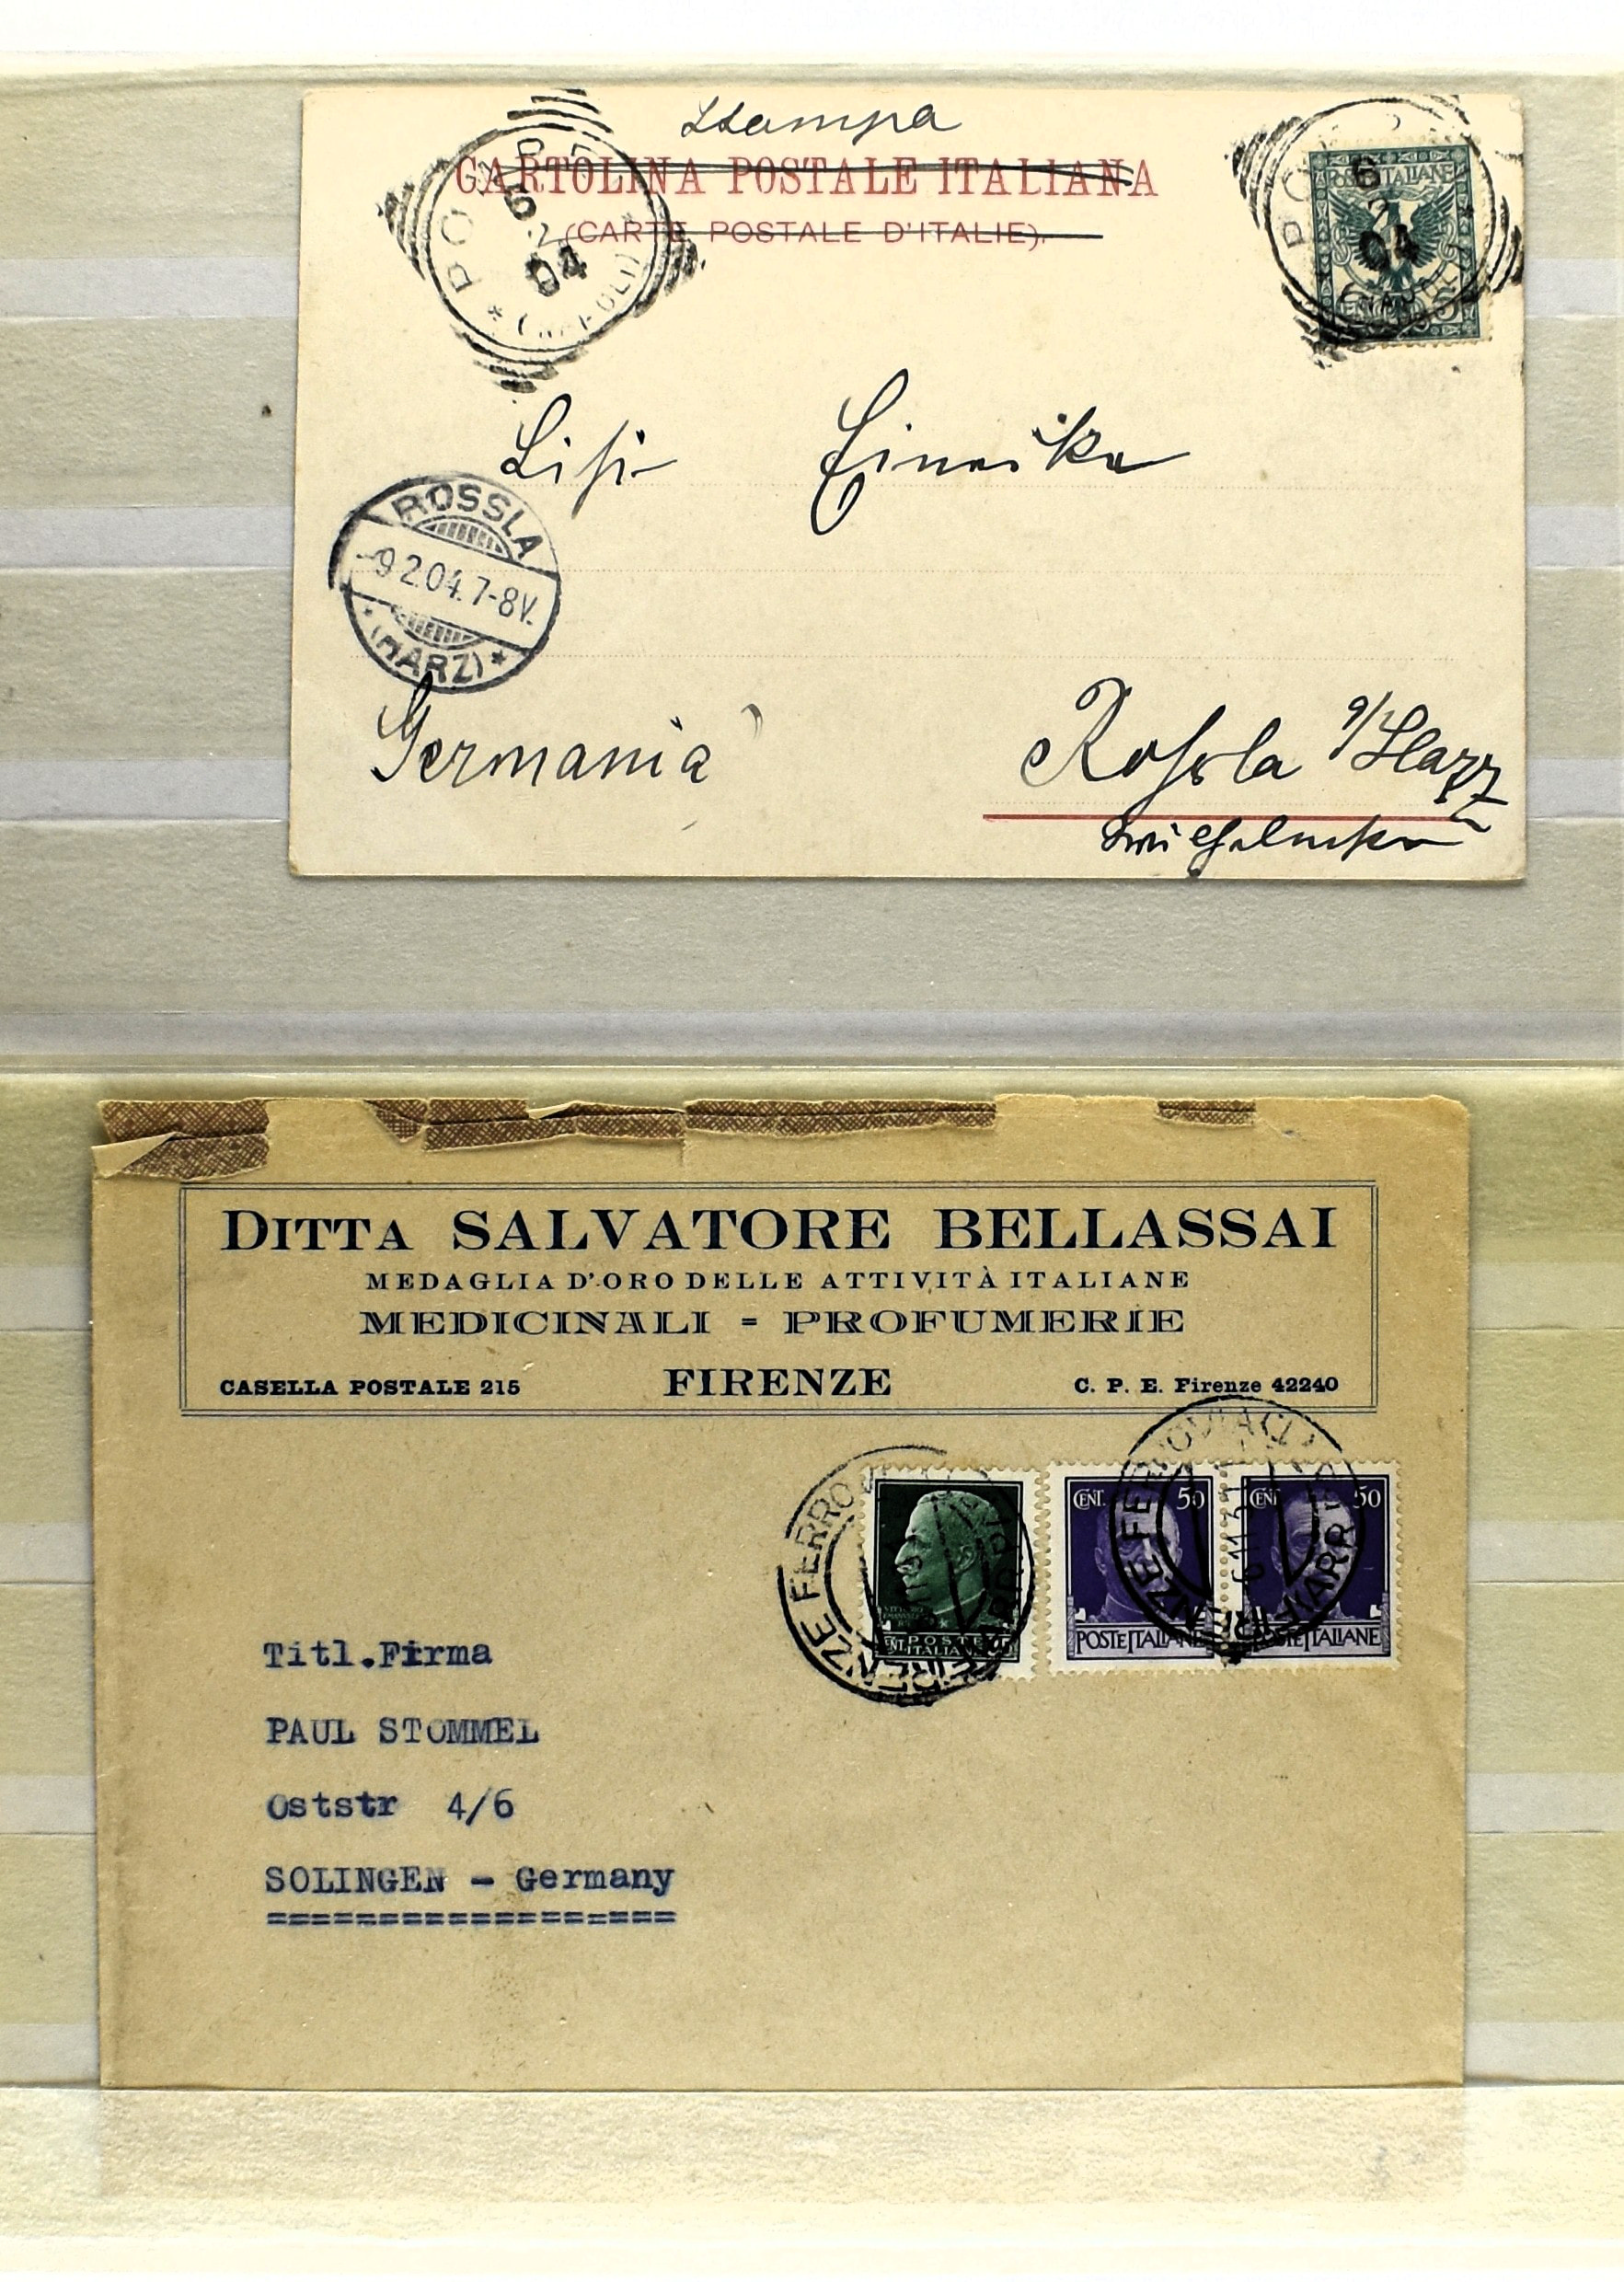 Stampa
CARTOLINA POSTALE ITALIANA
(CARTE POSTALE D'ITALIE).
6
2
04
POSTE ITALIANE
6
2
04
(NAPOLI)
Lisi
ROSSLA
-9 2.04. 7-8V.
* (HARZ) *
Germania
Rossla a/Harz
DITTA SALVATORE BELLASSAI
MEDAGLIA D'ORO DELLE ATTIVITÀ ITALIANE
MEDICINALI = PROFUMERIE
CASELLA POSTALE 215 FIRENZE C. P. E. Firenze 42240
FIRENZE FERROVIA
POSTE
ITALIANE
CENT. 50
POSTE ITALIANE
CENT. 50
POSTE ITALIANE
FIRENZE FERROVIA
Titl.Firma
PAUL STOMMEL
Oststr 4/6
SOLINGEN - Germany
===================